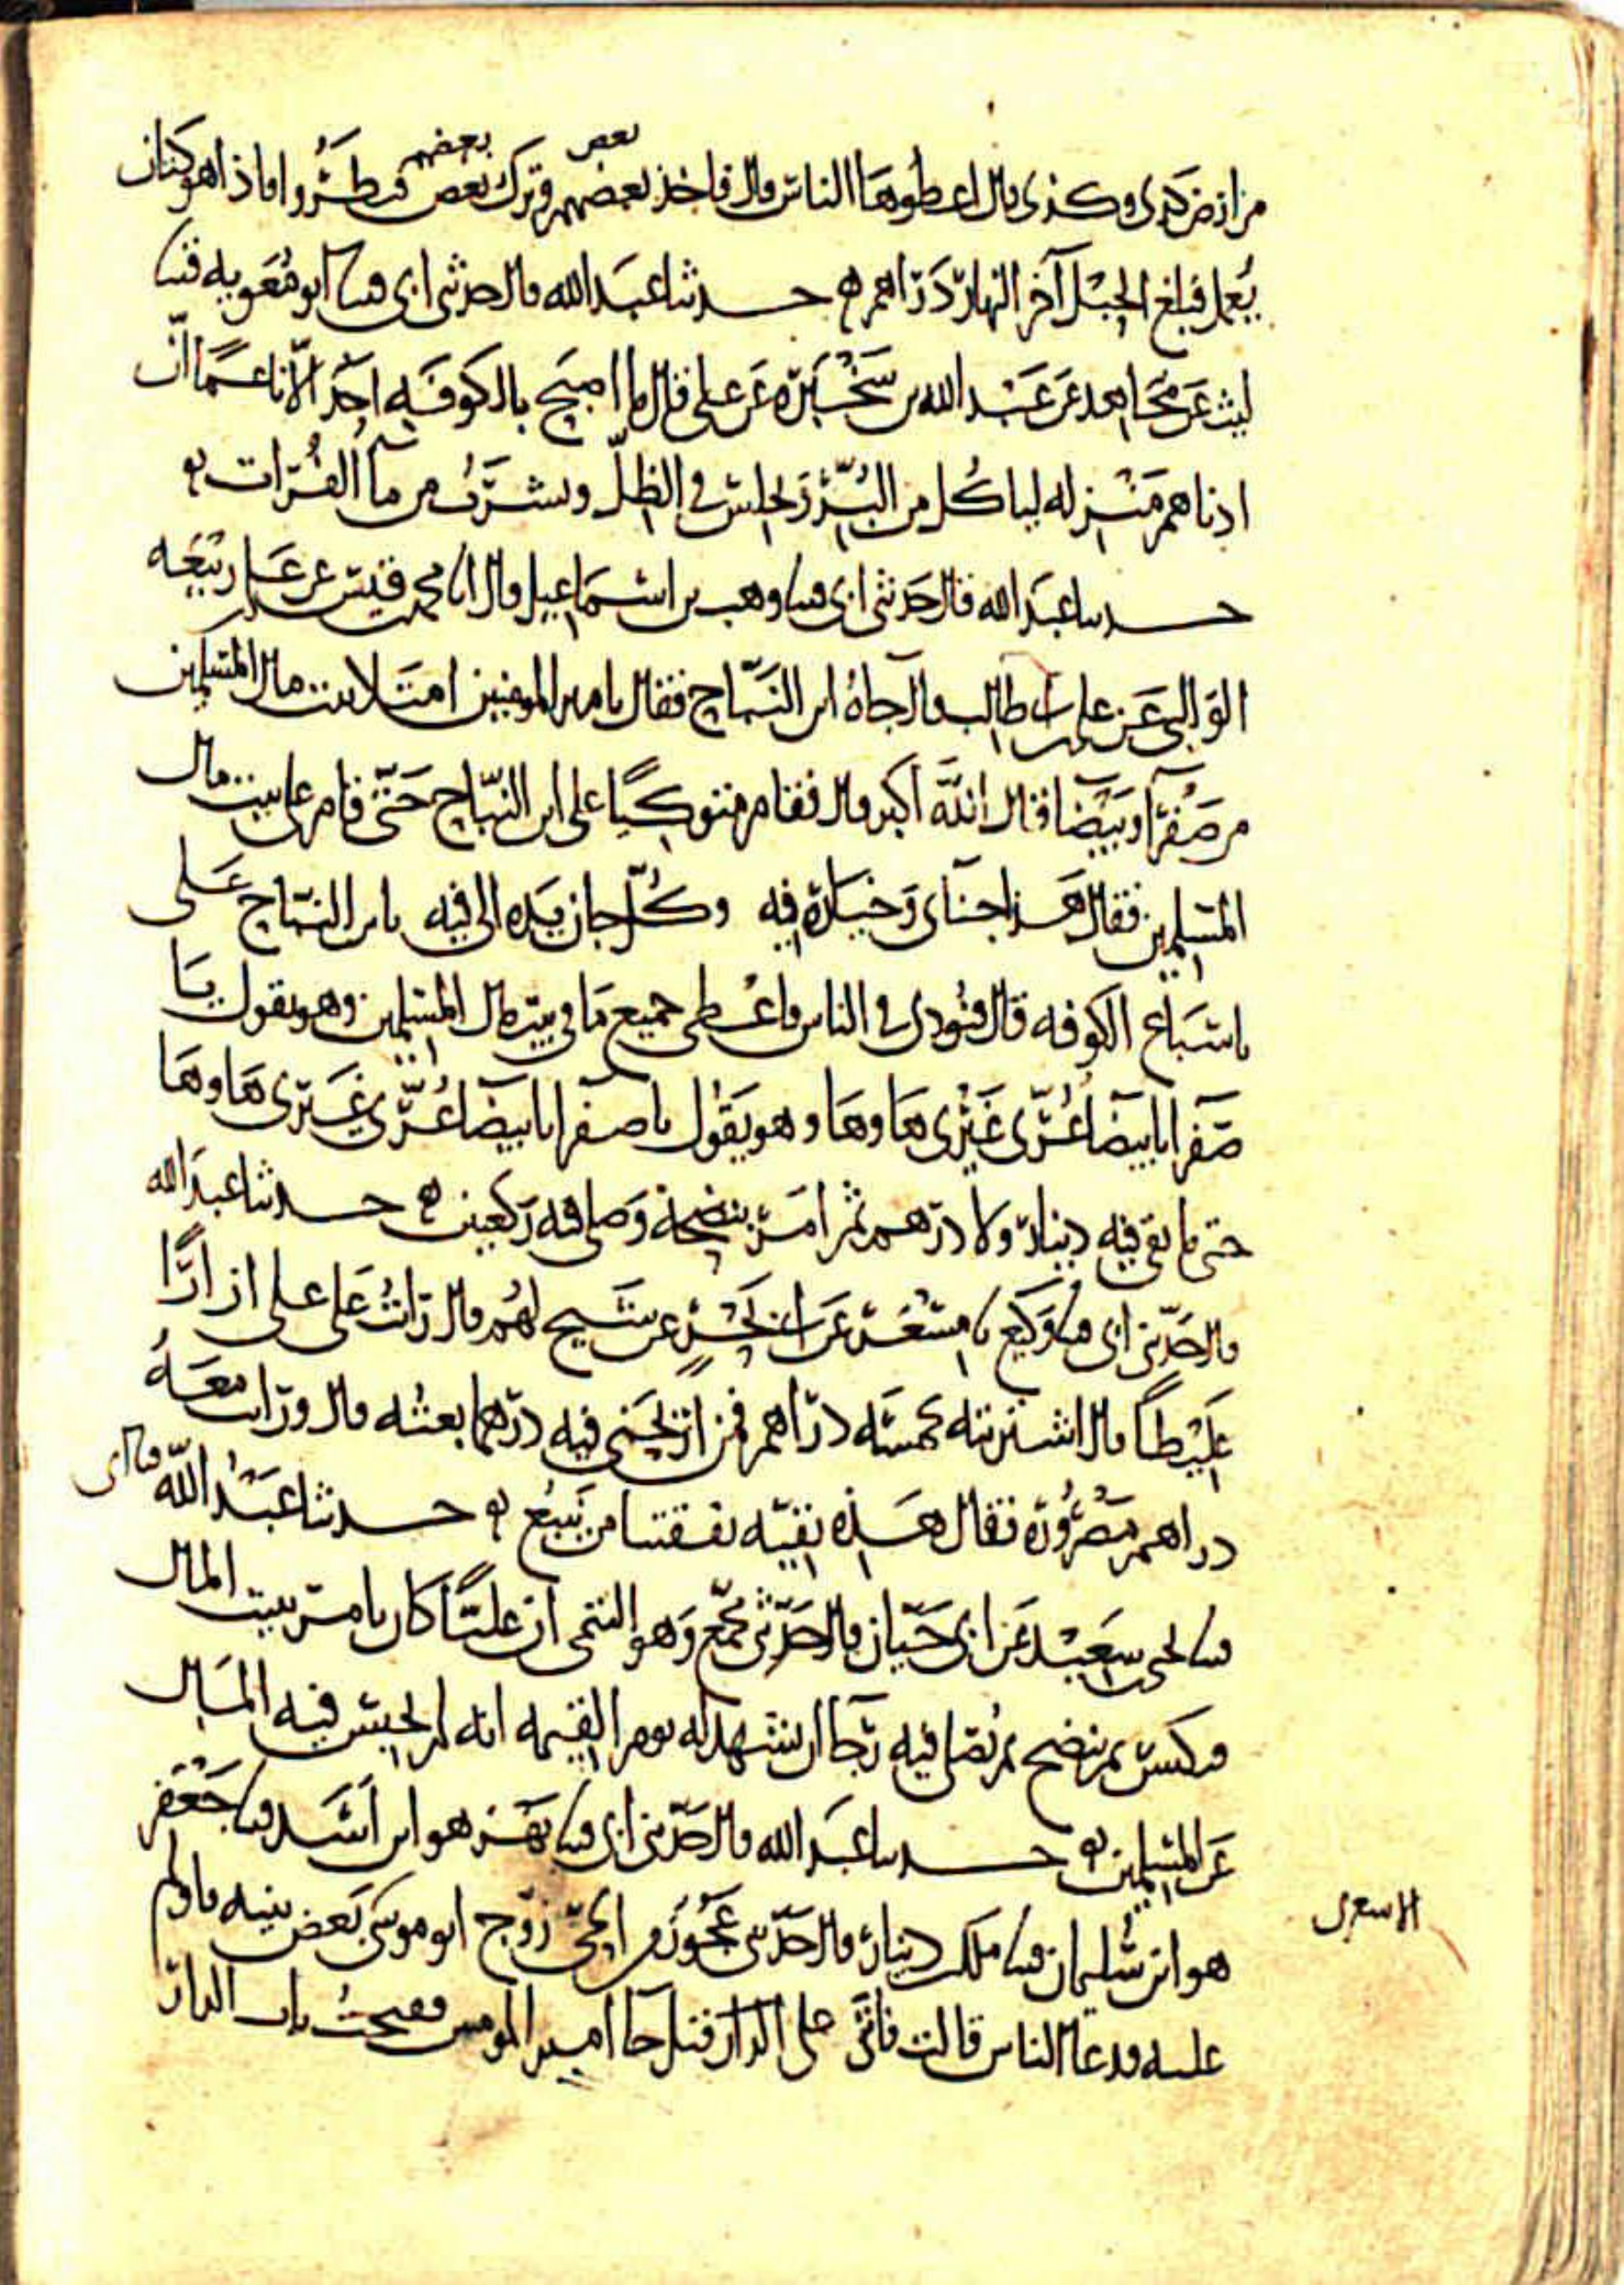 من ارض كذى وكذى قال اعطوها الناس قال فاخذ بعضهم وترك بعض فنظروا فاذا هو كتان
بعض بعضهم
يعمل فبلغ الحبل آخر النهار دراهم ه حدثنا عبد الله قال حدثنى ابى قثنا ابو معويه قثنا
ليث عن مجاهد عن عبد الله بن سخبرة عن على قال ما اصبح بالكوفه احد الا ناعما ان
ادناهم منزله لياكل من البر ويجلس فى الظل ويشرب من ما الفرات ه
حدثنا عبد الله قال حدثنى ابى قثنا وهب بن اسماعيل قال انا محمد بن قيس عن على بن ربيعه
الوالبى عن على بن ابى طالب قال جاه ابن النباج فقال يا امير المومنين امتلا بيت مال المسلمين
من صفرا وبيضا فقال الله اكبر قال فقام متوكيا على ابن النباج حتى قام على بيت مال
المسلمين فقال هذا جناى وخياره فيه وكل جان يده الى فيه يا بن النباج على
باشباع الكوفه قال فنودى فى الناس فاعطى جميع ما فى بيت مال المسلمين وهو يقول يا
صفرا يا بيضا غرى غيرى ها وها وهو يقول يا صفرا يا بيضا غرى غيرى ها وها
حتى ما بقى فيه دينار ولا درهم ثم امر بنضحه وصلى فيه ركعتين ه حدثنا عبد الله
قال حدثنى ابى قثنا وكيع نا مسعر عن ابى بحر عن شيخ لهم قال رايت على على ازارا
غليظا قال اشتريته بخمسه دراهم فمن اربحنى فيه درهما بعته قال ورايت معه
دراهم مصرورة فقال هذه بقيه نفقتنا من ينبع ه حدثنا عبد الله قثنا ابى
قثنا يحيى بن سعيد عن ابى حيان قال حدثنى مجمع وهو التيمى ان عليا كان يامر ببيت المال
فيكنس ثم ينضح ثم يصلى فيه رجا ان يشهد له يوم القيمه انه لم يحبس فيه المال
عن المسلمين ه حدثنا عبد الله قال حدثنى ابى قثنا بهز هو ابن اسد قثنا جعفر
هو ابن سليمان قثنا ملك بن دينار قال حدثتنى عجوز من الحى زوج ابو موسى بعض بنيه فاولم
الاشعرى
عليه فدعا الناس قالت فاتى على الدار فقيل جا امير المومنين ففتحت باب الدار